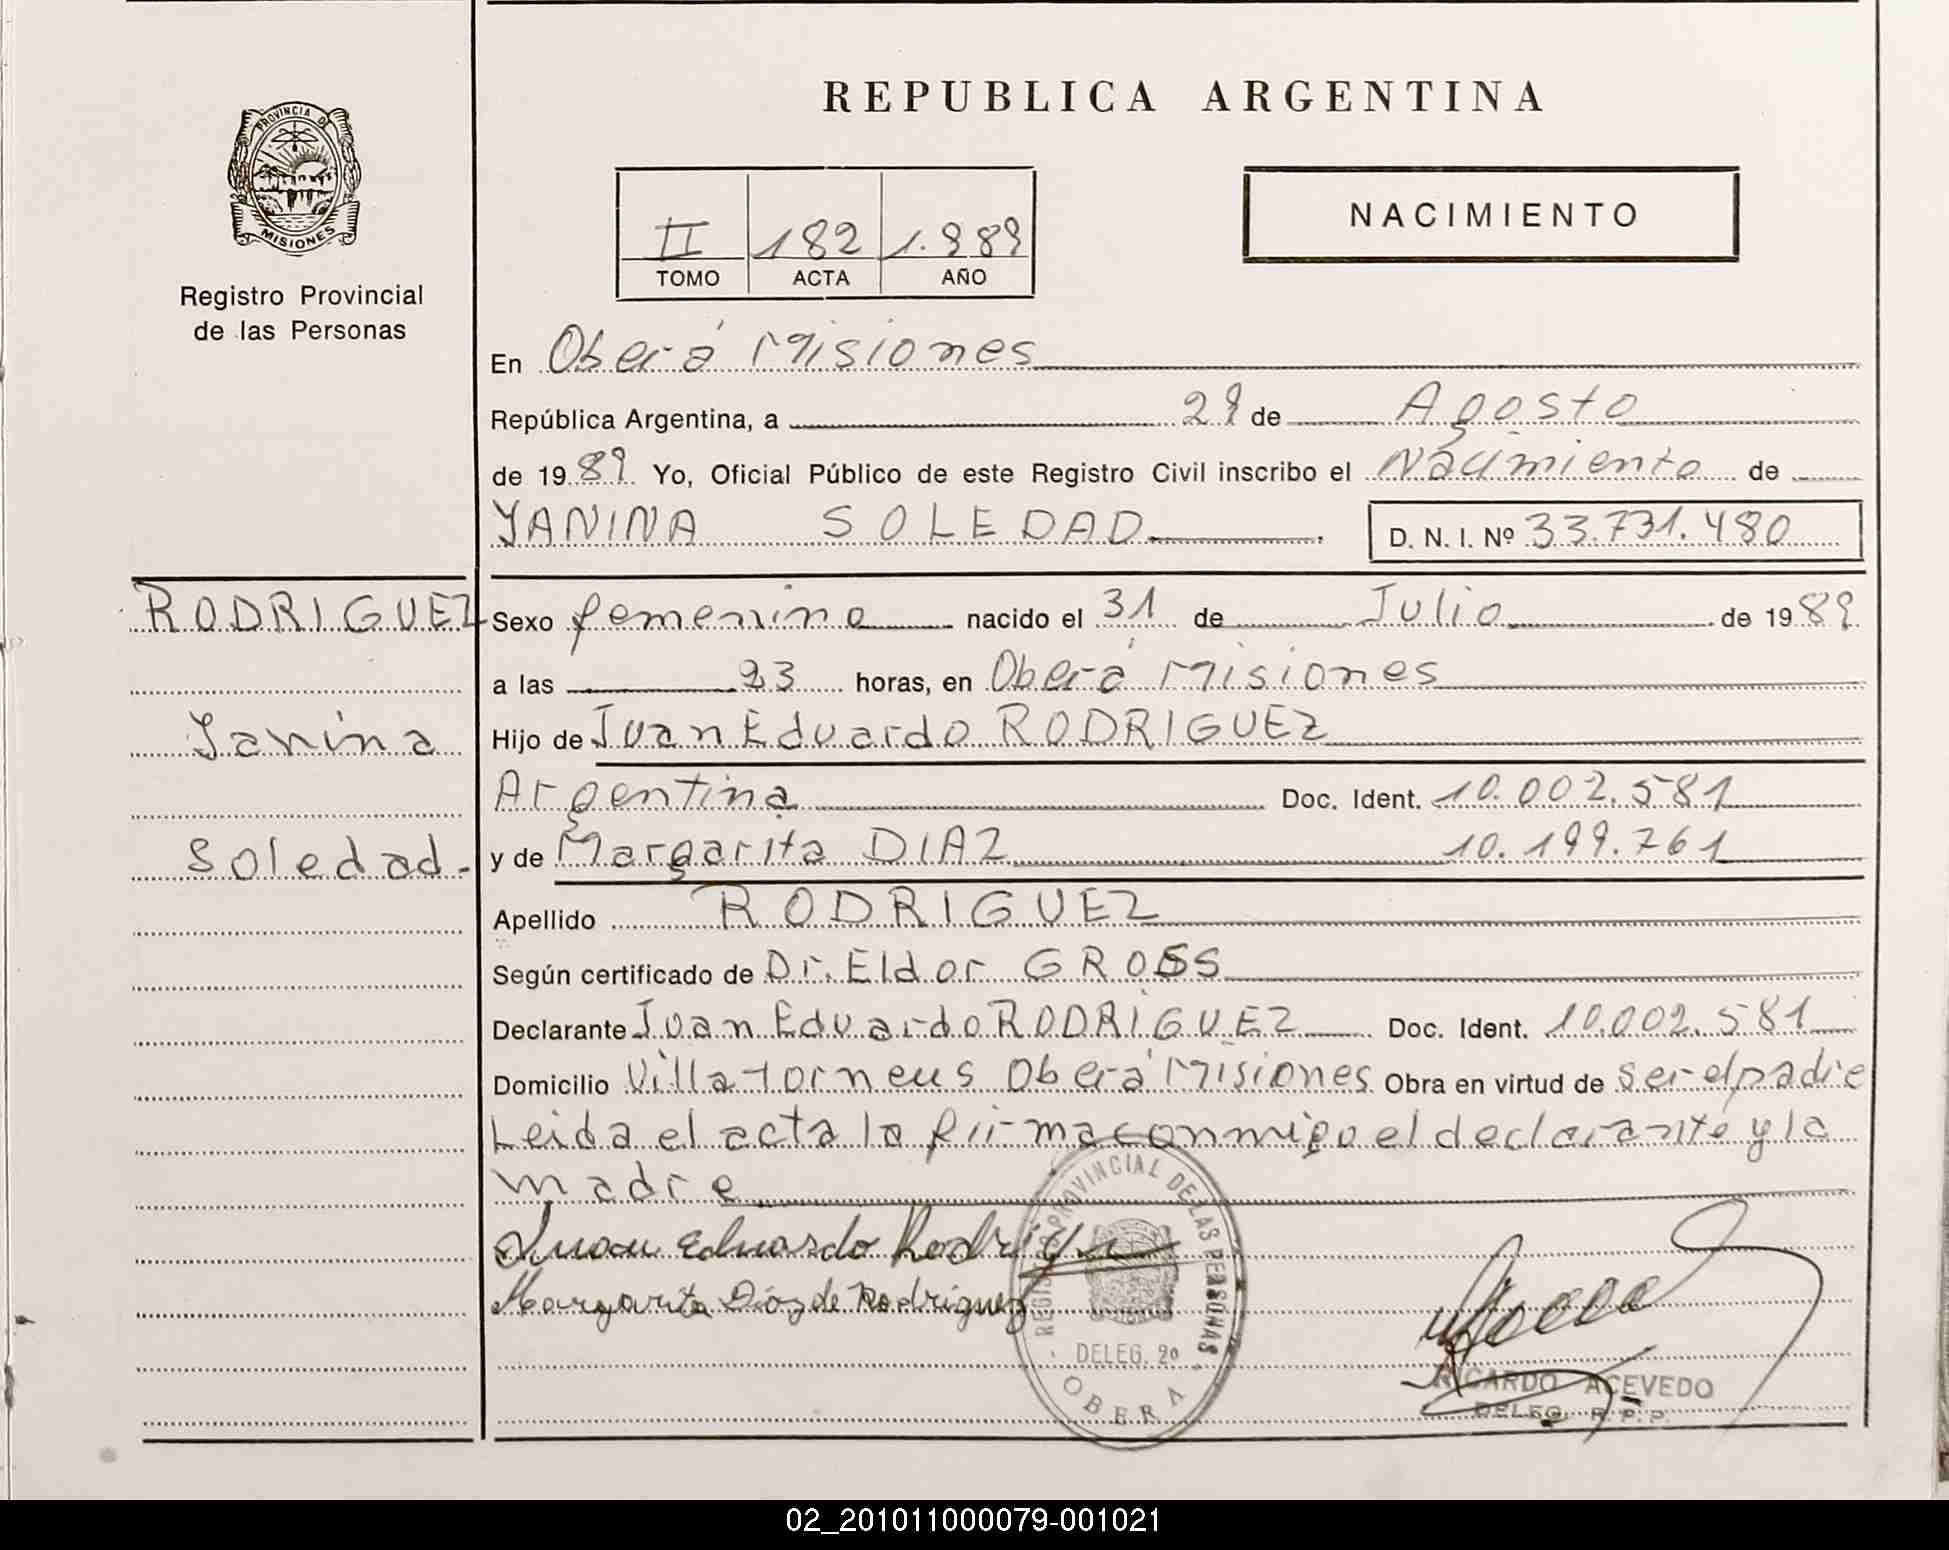 REPUBLICA ARGENTINA
PROVINCIA DE
MISIONES
Registro Provincial
de las Personas
II 182 1.989
TOMO ACTA AÑO
NACIMIENTO
En Oberá Misiones
República Argentina, a 29 de Agosto
de 1989 Yo, Oficial Público de este Registro Civil inscribo el Nacimiento de
YANINA SOLEDAD D. N. I. Nº 33.731.480
RODRIGUEZ
Yanina
Soledad.-
Sexo femenino nacido el 31 de Julio de 1989
a las 23 horas, en Oberá Misiones
Hijo de Juan Eduardo RODRIGUEZ
Argentina Doc. Ident. 10.002.581
y de Margarita DIAZ 10.199.761
Apellido RODRIGUEZ
Según certificado de Dr. Eldor GROSS
Declarante Juan Eduardo RODRIGUEZ Doc. Ident. 10.002.581
Domicilio Villa torneus Oberá Misiones Obra en virtud de ser el padre
Leida el acta la firma conmigo el declarante y la
madre
Juan Eduardo Rodriguez
Margarita Díaz de Rodriguez
REGISTRO PROVINCIAL DE LAS PERSONAS
DELEG. 2º
OBERA
RICARDO ACEVEDO
DELEG. R.P.P.
02_201011000079-001021